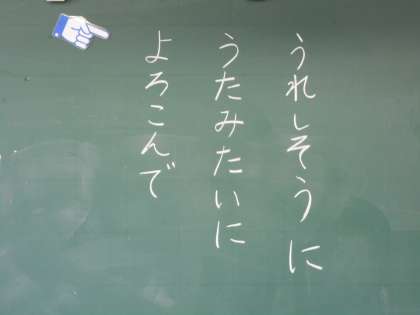 うれしそうに
うたみたいに
よろこんで